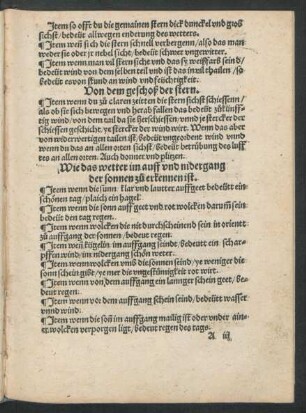 Item so offt du die gemainen stern dick dunckel vnd groß
sichst/ bedeüt allwegen enderung des wetters.
Item weñ sich die stern schnell verbergenn/ also das man
weder sie oder ir nebel sicht/ bedeüt schwer vngewitter.
Item wenn man vil stern siche vnd das sy weißfarb sein d/
bedeüt wind von dem selben teil vnd ist das in vil thailen/ so
bedeüt es von stund an wind vnd feüchtigkeit.
Von dem geschoß der stern.
Item wenn du zü claren zeiten die stern sichst schiessenn/
als ob sie sich bewegen vnd herab fallen das bedeüt zükünff-
tig wind/ von dem tail da sie her schiessen/ vnnd ye stercker der
schiessen geschicht. ye stercker der wind wirt. Wenn das aber
von widerwertigen tailen ist/ bedeüt vngeordent wind vnnd
wenn du das an allen orten sichst/ Bedeüt betrübung des lufft
res an allen orten. Auch donner vnd plitzen.
Wie das wetter im auff vnd nidergang
der sonnen zü erkennen ist.
Item wenn die sunn klar vnd lautter auffgeet bedeüt ein
schönen tag/ plaich ein hagel
Item wenn die sonn auffgeet vnd rot wolcken darumb sein
bedeüt den tag regen.
Item wenn wolcken die nit durchscheinend sein in orient
zü auffgang der sonnen/ bedeut regen.
Item weñ kügelin im auffgang seindt/ bedeutt ein schar-
pffen wind/ im nidergang schön wetter.
Item wenn wolcken vmb die sonnen seind/ ye weniger die
sonn schein gibt/ ye mer die vngestümigkeit rot wirt.
Item wenn von dem auffgang ein lanniger schein geet/ be-
deut regen.
Item wenn vor dem auffgang schein seind/ bedeüt wasser
vnnd wind.
Item wenn die soñ im auffgang mailig ist oder vnder ain-
er wolcken verporgen ligt/ bedeut regen des tags.
A iij